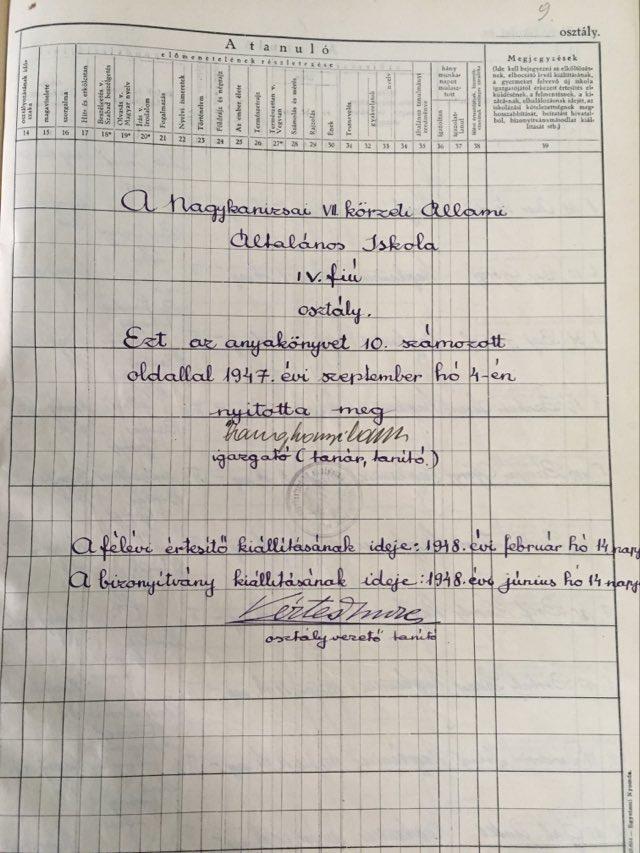 9.
osztály.
A tanuló
előmenetelének részletezése
hány munkanapot mulasztott
Megjegyzések
(Ide kell bejegyezni az elköltözésnek, elbocsátó levél kiállításának, a gyermeket felvevő új iskola igazgatójától érkezett értesítés elküldésének, a felmentésnek, a kizárásnak, elhalálozásnak idejét, az iskolázási kötelezettségnek meghosszabbítását, beiratási hivatalból, bizonyítványmásodlat kiállítását stb.)
magaviselete
szorgalma
Hit- és erkölcstan
Beszélgetés v. Szabad beszélgetés
Olvasás v. Magyar nyelv
Írás v. Irodalom
Fogalmazás
Nyelvi ismeretek
Történelem
Földrajz és néprajz
Az ember élete
Természetrajz
Természettan v. Vegytan
Számolás és mérés
Rajzolás
Ének
Testnevelés
gyakorlatok
nyelv
általános tanulmányi eredménye
igazoltan
igazolatlanul
14 15 16 17 18* 19* 20* 21 22 23 24 25 26 27* 28 29 30 31 32 33 34 35 36 37 38 39
A Nagykanizsai VII. körzeti Állami
Általános Iskola
IV. fiú
osztály.
Ezt az anyakönyvet 10. számozott
oldallal 1947. évi szeptember hó 4-én
nyitotta meg
igazgató (tanár, tanító.)
A félévi értesítő kiállításának ideje: 1948. évi február hó 14 nap
A bizonyítvány kiállításának ideje: 1948. évi június hó 14 nap
Kértes Imre
osztályvezető tanító
Egyetemi Nyomda.